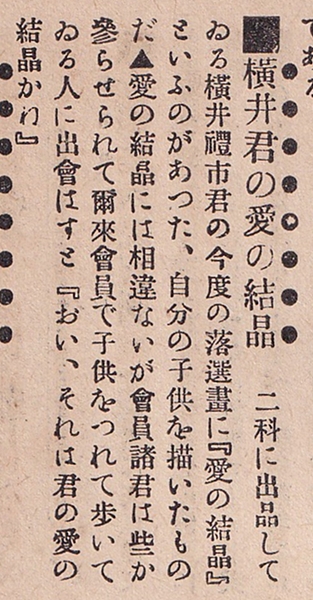 である
■横井君の愛の結晶　二科に出品して
ゐる横井禮市君の今度の落選畫に『愛の結晶』
といふのがあつた、自分の子供を描いたもの
だ▲愛の結晶には相違ないが會員諸君は些か
參らせられて爾來會員で子供をつれて歩いて
ゐる人に出會はすと『おい、それは君の愛の
結晶かね』